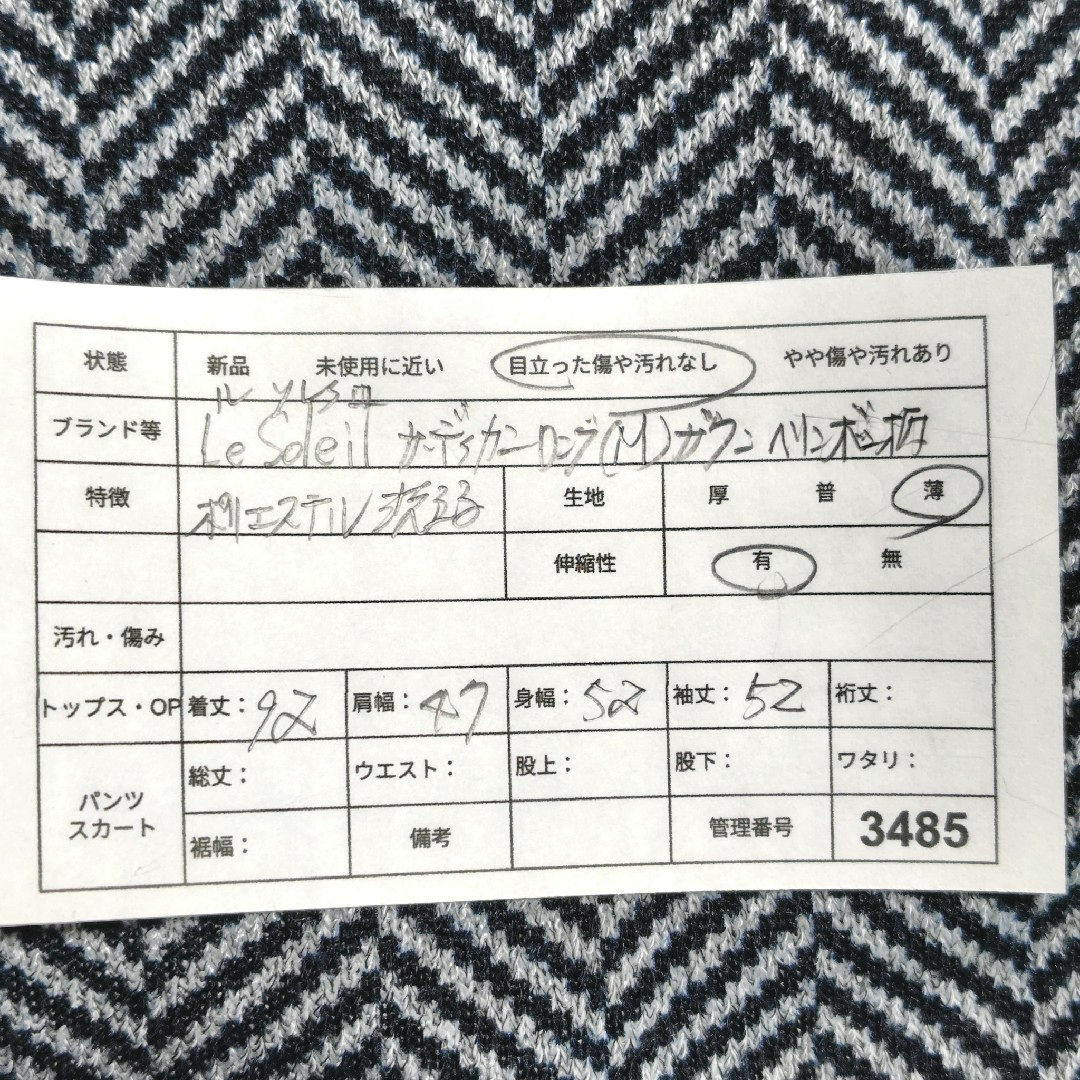 状態 新品 未使用に近い 目立った傷や汚れなし やや傷や汚れあり
ル ソレイユ
ブランド等 Le Soleil カーディガン ロング(M)ガウン ヘリンボン柄
特徴 ポリエステル 洗える 生地 厚 普 薄
伸縮性 有 無
汚れ・傷み
トップス・OP 着丈：92 肩幅：47 身幅：52 袖丈：52 裄丈：
パンツ スカート 総丈： ウエスト： 股上： 股下： ワタリ：
裾幅： 備考 管理番号 3485